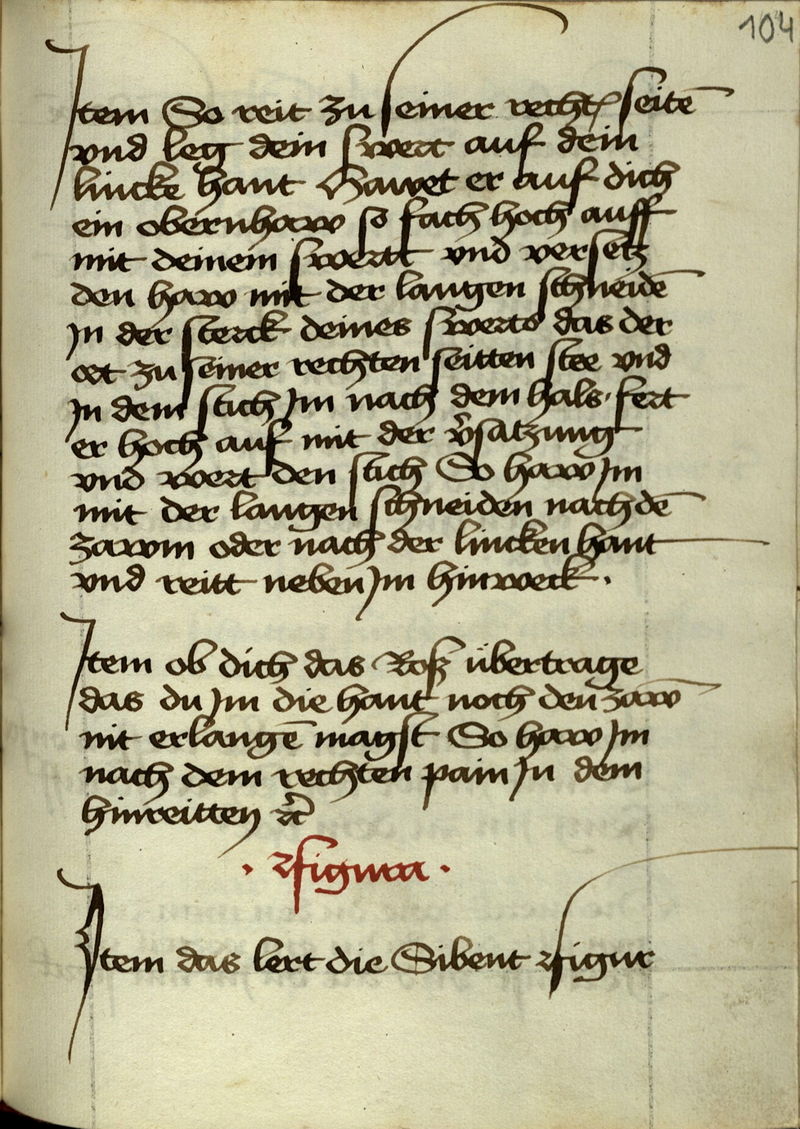 104
Item So reit zu seiner rechtn seitē
vnd leg dein swert auf dein
lincke hant Hawet er auf dich
ein obernhaw so fach hoch auff
mit deinem swertt vnd versetz
den haw mit der langen schneidē
In der sterck deines swerts das der
ort zu seiner rechten seitten stee vnd
In dem stich Im nach dem hals· fert
er hoch auf mit der v̄satzung
vnd wert den stich So haw Im
mit der langen schneiden nach dē
zawm oder nach der lincken hant
vnd reitt neben Im hinweck ·
Item ob dich das Roß übertrage
das du Im die hant noch den zaw̄
nit erlangē magst So haw Im
nach dem rechten pain In dem
hinreitten ⁊c̄
· ffigura ·
Item das lert die Sibent ffigur